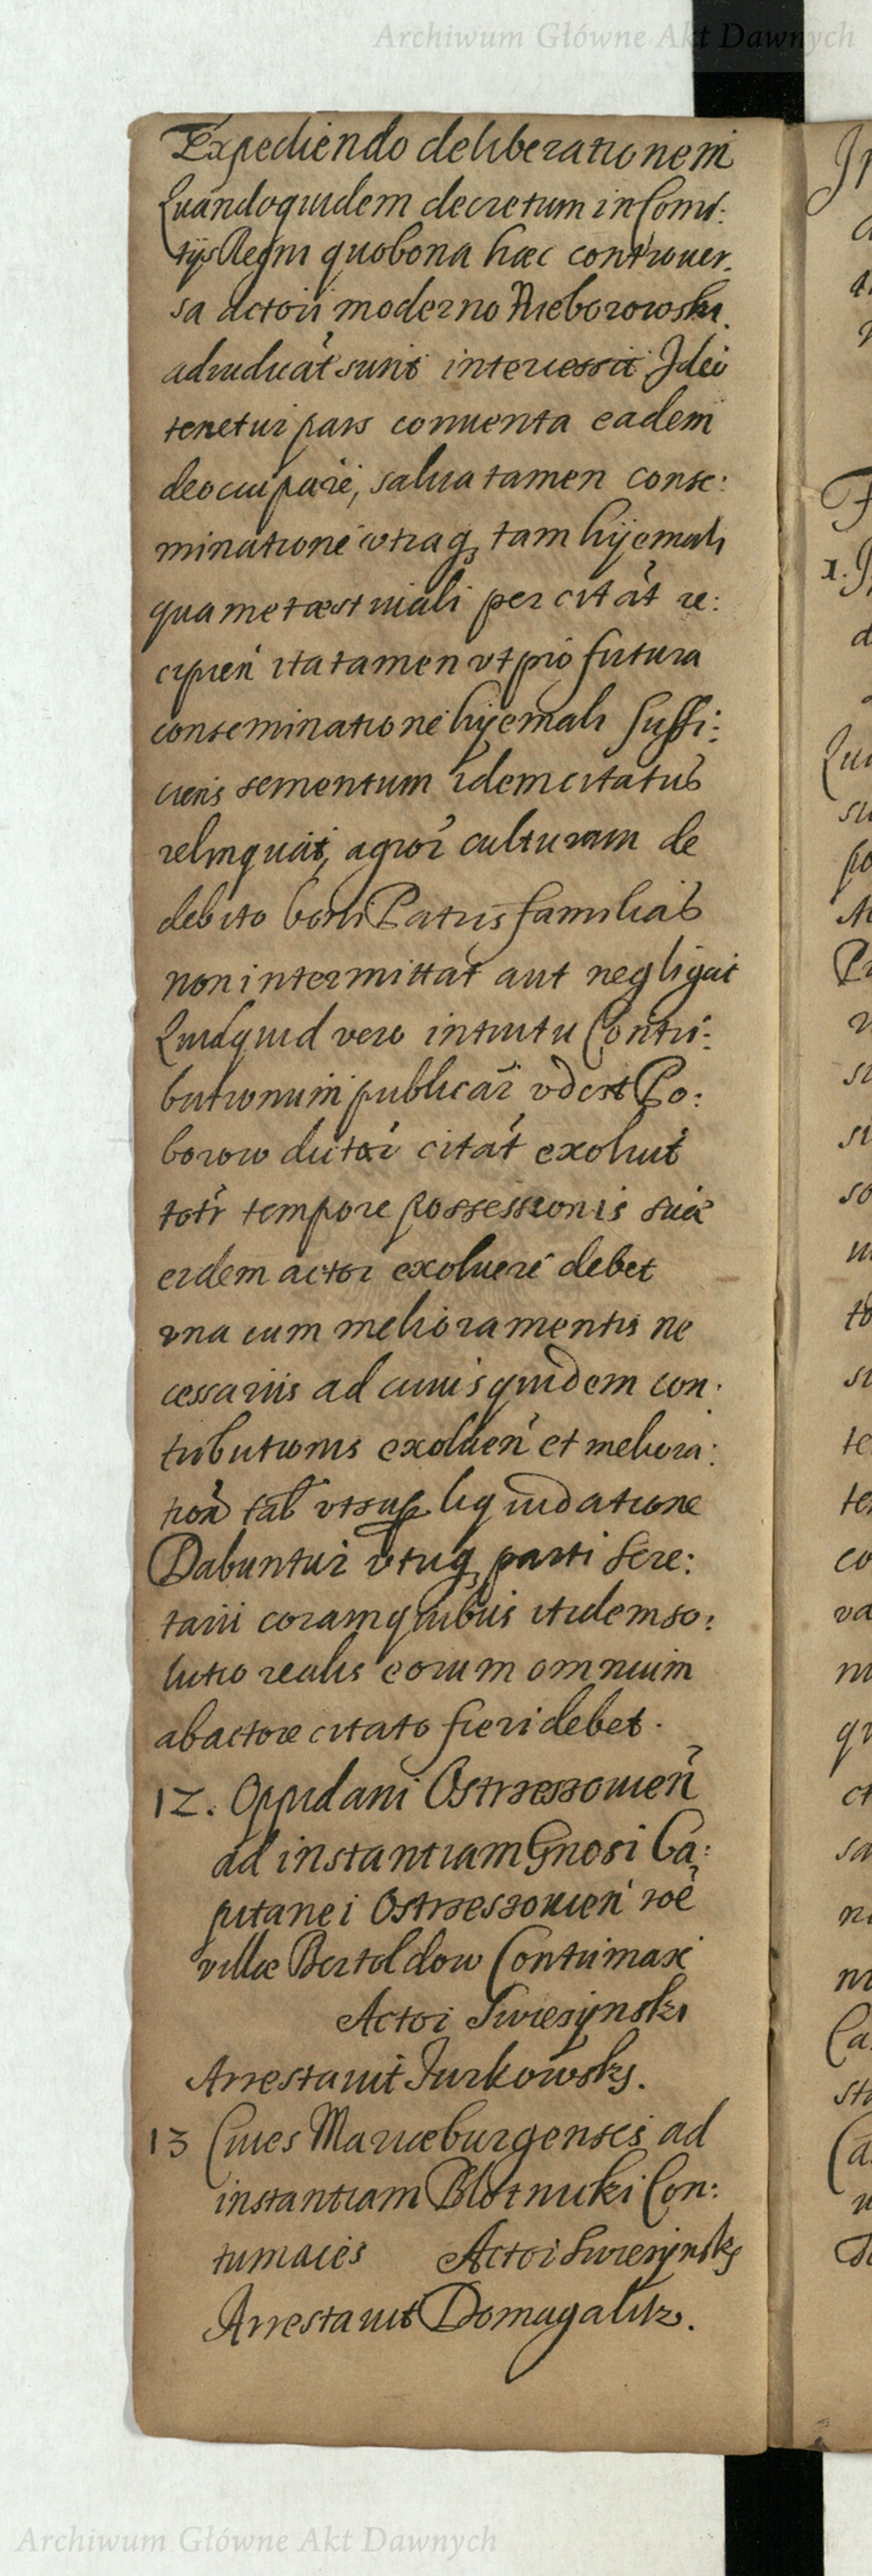 Archiwum Główne Akt Dawnych
Expediendo deliberationem
Quandoquidem decretum in Comi:
tijs Regni quo bona hæc controuer.
sa actori moderno Nieborowski.
adiudicat sunt intercessit Ideo
tenetur pars conuenta eadem
deoccupare, salua tamen conse:
minatione vtraq₃ tam hyemali
quam et æstiuali per citat re:
cipien ita tamen vt pro futura
conseminatione hyemali suffi:
ciens sementum idem citatus
relinquat, agror culturam de
debito boni Patris familias
non intermittat aut negligat
Quidquid vero intuitu Contri:
butionum publicar vdest Po:
borow dictor citat exoluit
toti tempore possessionis suæ
eidem actor exoluere debet
vna cum melioramentis ne
cessariis ad cuius quidem con:
tributionis exoluen et meliora:
tion tal vt sup liquidatione
Dabuntur vtriq₃ parti Scre:
tarii coram quibus itidem so:
lutio realis eorum omnium
ab actore citato fieri debet.
12. Oppidani Ostrzeszouien
ad instantiam Gnosi Ca:
pitanei Ostrzeszouien roē
villæ Bertoldow Contumaxi
Actor Swiesynski
Arrestauit Jurkowsky.
13 Ciues Mariæburgenses ad
instantiam Blotnicki Con:
tumaces Actor Swiesynsky
Arrestauit Domagalitz.
Archiwum Główne Akt Dawnych